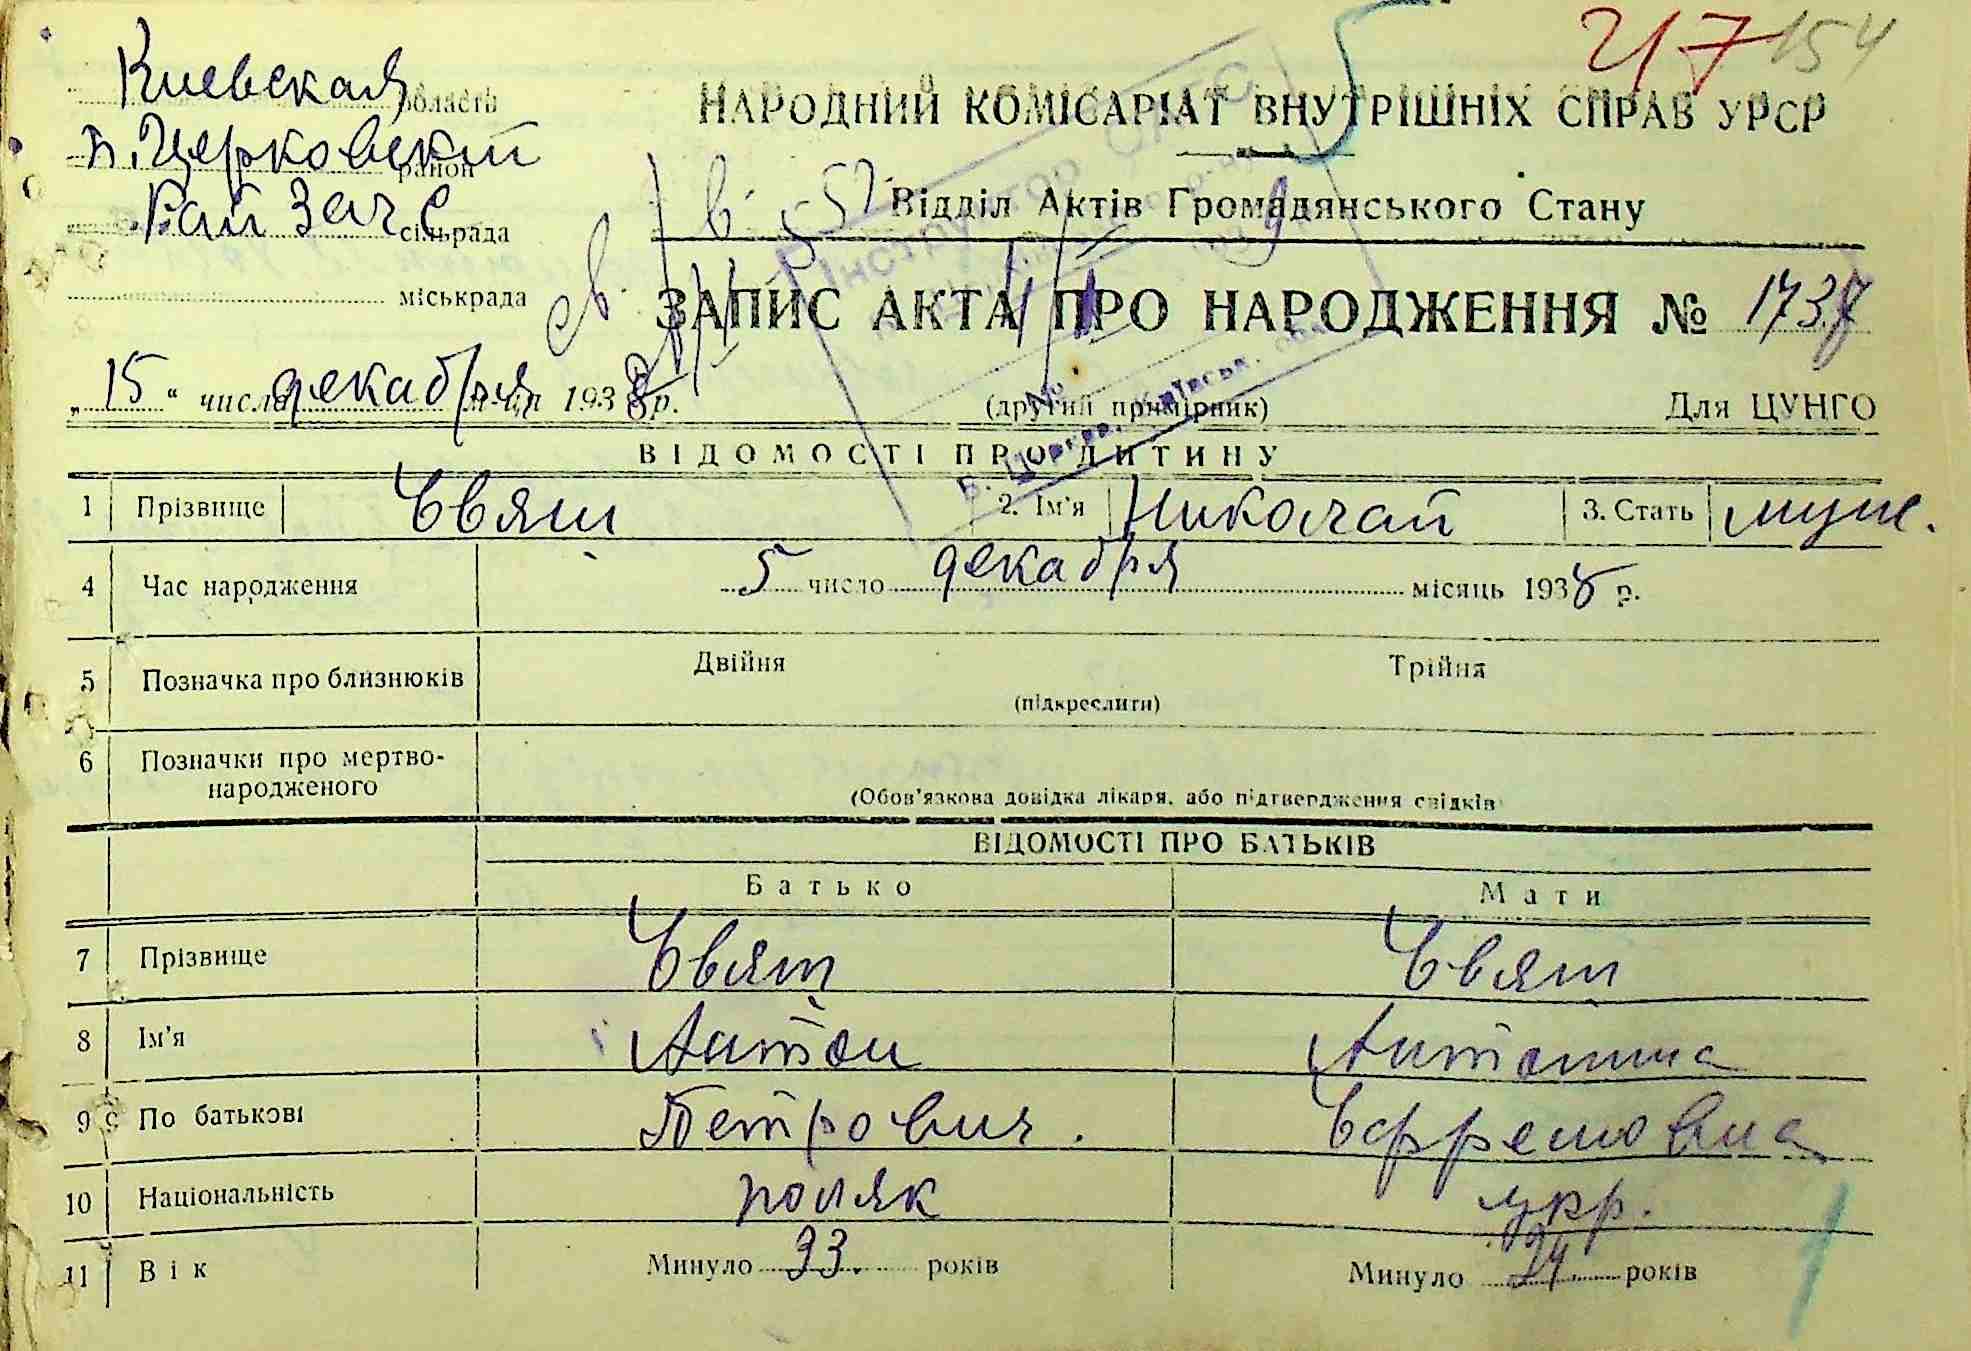 217 154
Киевская область
Б. Церковский район
Рай Загс сільрада
міськрада
НАРОДНИЙ КОМІСАРІАТ ВНУТРІШНІХ СПРАВ УРСР
Відділ Актів Громадянського Стану
ЗАПИС АКТА ПРО НАРОДЖЕННЯ № 1737
„15“ число декабря м-ця 1938 р. (другий примірник) Для ЦУНГО
ВІДОМОСТІ ПРО ДИТИНУ
1 Прізвище Свят 2. Ім'я Николай 3. Стать муж.
4 Час народження 5 число декабря місяць 1938 р.
5 Позначка про близнюків Двійня Трійня
(підкреслити)
6 Позначки про мертво-
народженого
(Обов'язкова довідка лікаря, або підтвердження свідків)
ВІДОМОСТІ ПРО БАТЬКІВ
Батько Мати
7 Прізвище Свят Свят
8 Ім'я Антон Антонина
9 По батькові Петрович. Ефремовна
10 Національність поляк укр.
11 Вік Минуло 33. років Минуло 24 років